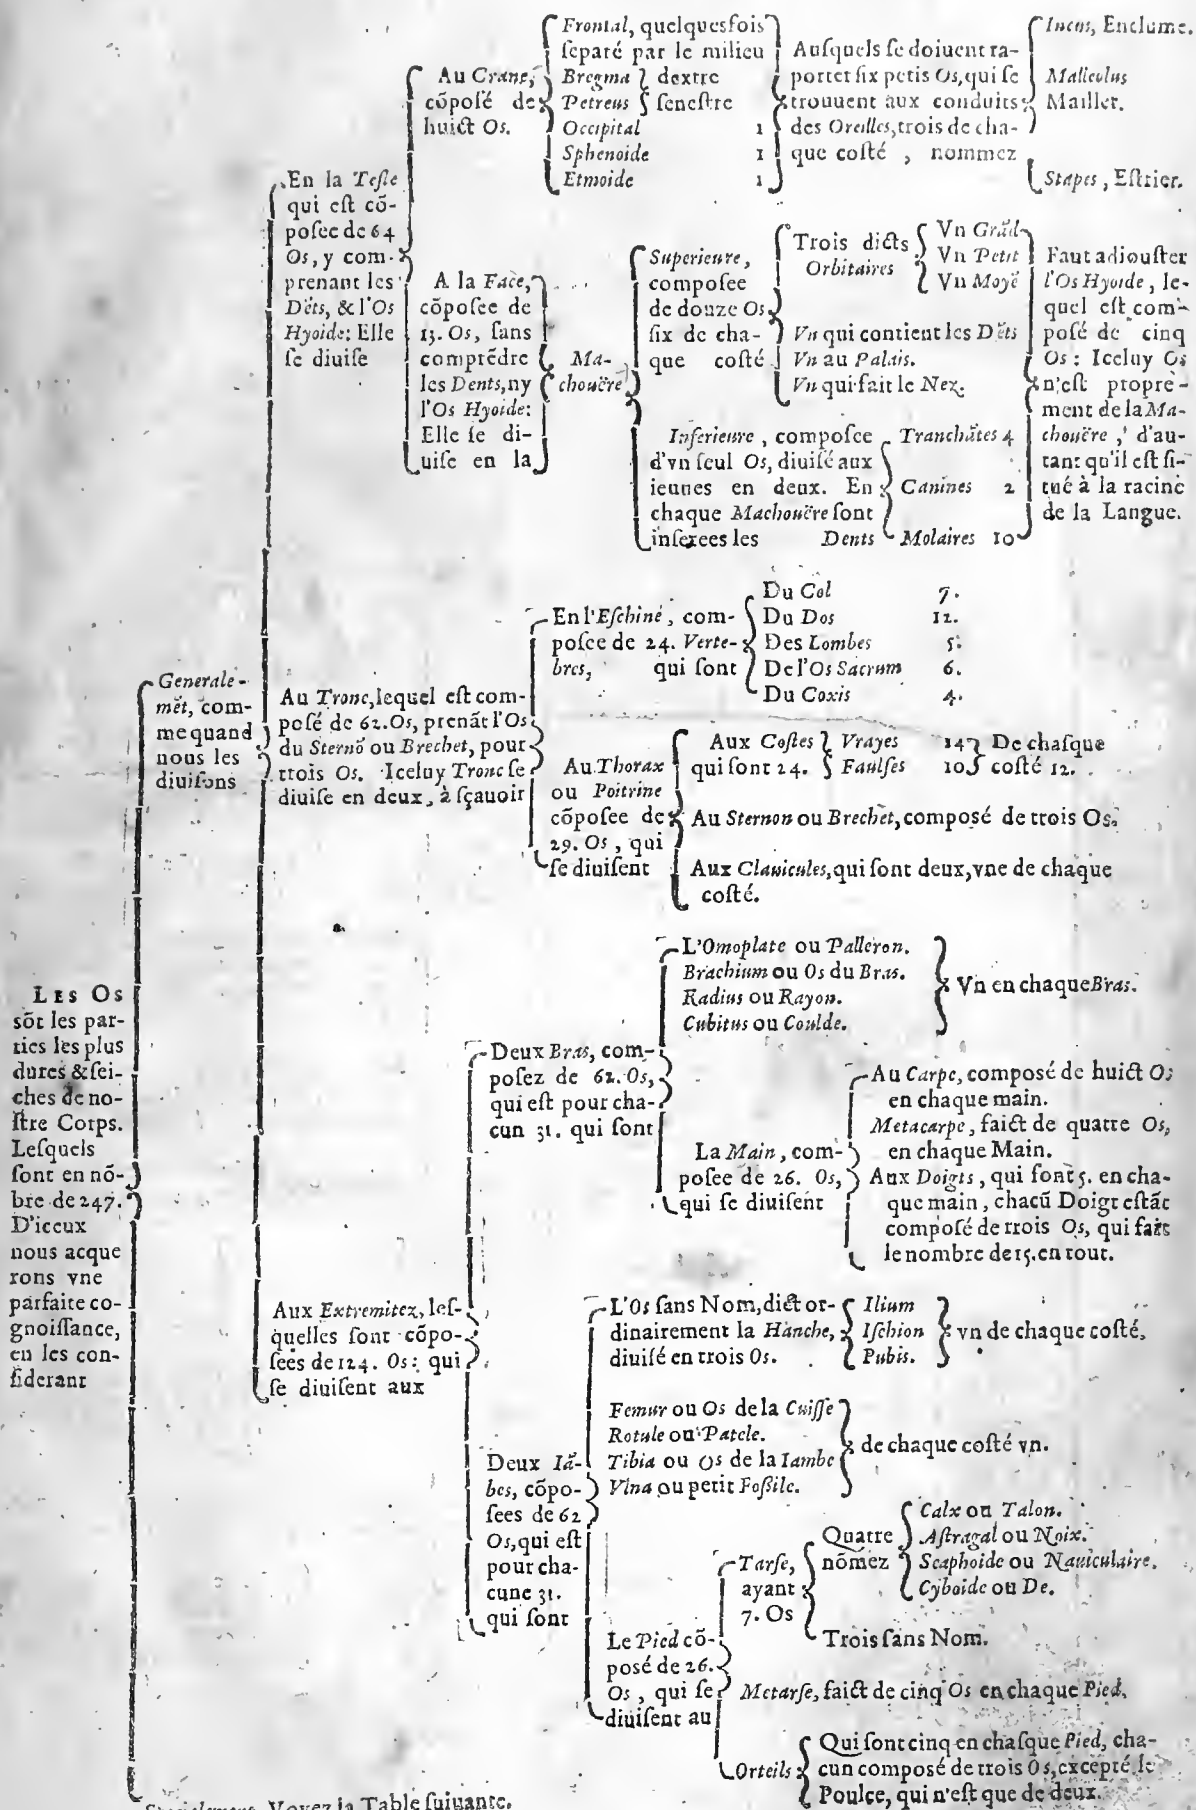 LES Os
sõt les par-
ties les plus
dures & ſei-
ches de no-
ſtre Corps.
Leſquels
ſont en nõ-
bre de 247.
D'iceux
nous acque
rons vne
parfaite co-
gnoiſſance,
en les con-
ſiderant
Generale-
mẽt, com-
me quand
nous les
diuiſons
En la Teſte
qui eſt cõ-
poſee de 64
Os, y com-
prenant les
Dẽts, & l'Os
Hyoide: Elle
ſe diuiſe
Au Crane,
cõpoſé de
huict Os.
Frontal, quelquesfois
ſeparé par le milieu
Bregma } dextre
Petreus } ſeneſtre
Occipital 1
Sphenoide 1
Etmoide 1
Auſquels ſe doiuent ra-
porter ſix petis Os, qui ſe
trouuent aux conduits
des Oreilles, trois de cha-
que coſté , nommez
Incus, Enclume.
Malleolus
Maillet.
Stapes, Eſtrier.
A la Face,
cõpoſee de
13. Os, ſans
comprẽdre
les Dents, ny
l'Os Hyoide:
Elle ſe di-
uiſe en la
Ma-
chouëre
Superieure,
compoſee
de douze Os
ſix de cha-
que coſté
Trois dicts
Orbitaires
Vn Grãd
Vn Petit
Vn Moyẽ
Vn qui contient les Dẽts
Vn au Palais.
Vn qui fait le Nez.
Inferieure, compoſee
d'vn ſeul Os, diuiſé aux
ieunes en deux. En
chaque Machouëre ſont
inſerees les Dents
Tranchãtes 4
Canines 2
Molaires 10
Faut adiouſter
l'Os Hyoide, le-
quel eſt com-
poſé de cinq
Os : Iceluy Os
n'eſt propre-
ment de la Ma-
chouëre, d'au-
tant qu'il eſt ſi-
tué à la racine
de la Langue.
Au Tronc, lequel eſt com-
poſé de 62. Os, prenãt l'Os
du Sternõ ou Brechet, pour
trois Os. Iceluy Tronc ſe
diuiſe en deux, à ſçauoir
En l'Eſchine, com-
poſee de 24. Verte-
bres, qui ſont
Du Col 7.
Du Dos 12.
Des Lombes 5.
De l'Os Sacrum 6.
Du Coxis 4.
Au Thorax
ou Poitrine
cõpoſee de
29. Os, qui
ſe diuiſent
Aux Coſtes
qui ſont 24.
Vrayes 14
Faulſes 10
De chaſque
coſté 12.
Au Sternon ou Brechet, compoſé de trois Os.
Aux Clauicules, qui ſont deux, vne de chaque
coſté.
Aux Extremitez, leſ-
quelles ſont cõpo-
ſees de 124. Os : qui
ſe diuiſent aux
Deux Bras, com-
poſez de 62. Os,
qui eſt pour cha-
cun 31. qui ſont
L'Omoplate ou Palleron.
Brachium ou Os du Bras.
Radius ou Rayon.
Cubitus ou Coulde.
Vn en chaque Bras.
La Main, com-
poſee de 26. Os,
qui ſe diuiſent
Au Carpe, compoſé de huict Os
en chaque main.
Metacarpe, faict de quatre Os,
en chaque Main.
Aux Doigts, qui ſont 5. en cha-
que main, chacũ Doigt eſtãt
compoſé de trois Os, qui fait
le nombre de 15. en tout.
Deux Iã-
bes, cõpo-
ſees de 62
Os, qui eſt
pour cha-
cune 31.
qui ſont
L'Os ſans Nom, dict or-
dinairement la Hanche,
diuiſé en trois Os.
Ilium
Iſchion
Pubis.
vn de chaque coſté,
Femur ou Os de la Cuiſſe
Rotule ou Patele.
Tibia ou Os de la Iambe
Vlna ou petit Foſsile.
de chaque coſté vn.
Le Pied cõ-
poſé de 26.
Os, qui ſe
diuiſent au
Tarſe,
ayant
7. Os
Quatre
nõmez
Calx ou Talon.
Aſtragal ou Noix.
Scaphoide ou Nauiculaire.
Cyboide ou De.
Trois ſans Nom.
Metarſe, faict de cinq Os en chaque Pied.
Orteils
Qui ſont cinq en chaſque Pied, cha-
cun compoſé de trois Os, excepté le
Poulce, qui n'eſt que de deux.
Voyez la Table ſuiuante.